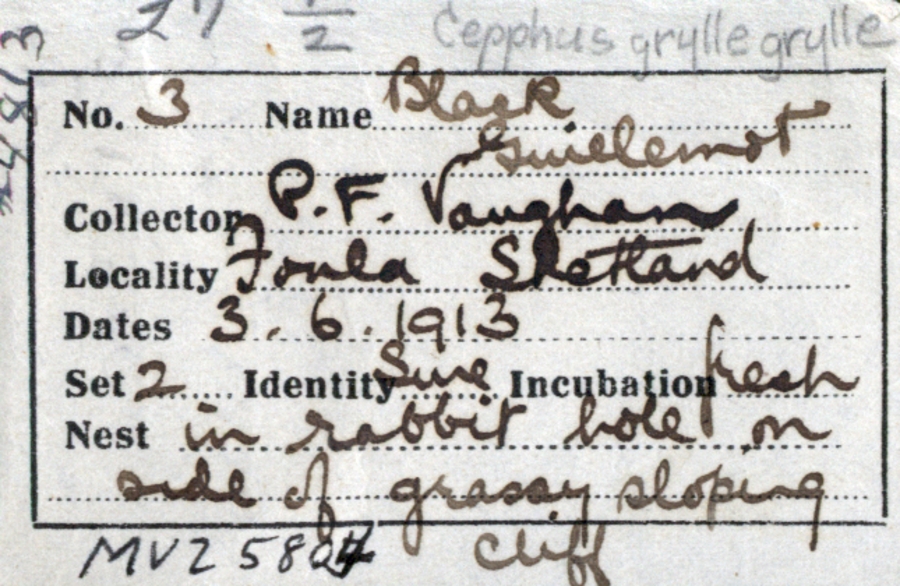 27 1/2 Cepphus grylle grylle
No. 3 Name Black
Guillemot
Collector P. F. Vaughan
Locality Foula Shetland
Dates 3. 6. 1913
Set 2 Identity Sure Incubation fresh
Nest in rabbit hole on
side of grassy sloping
cliff
MVZ 5804